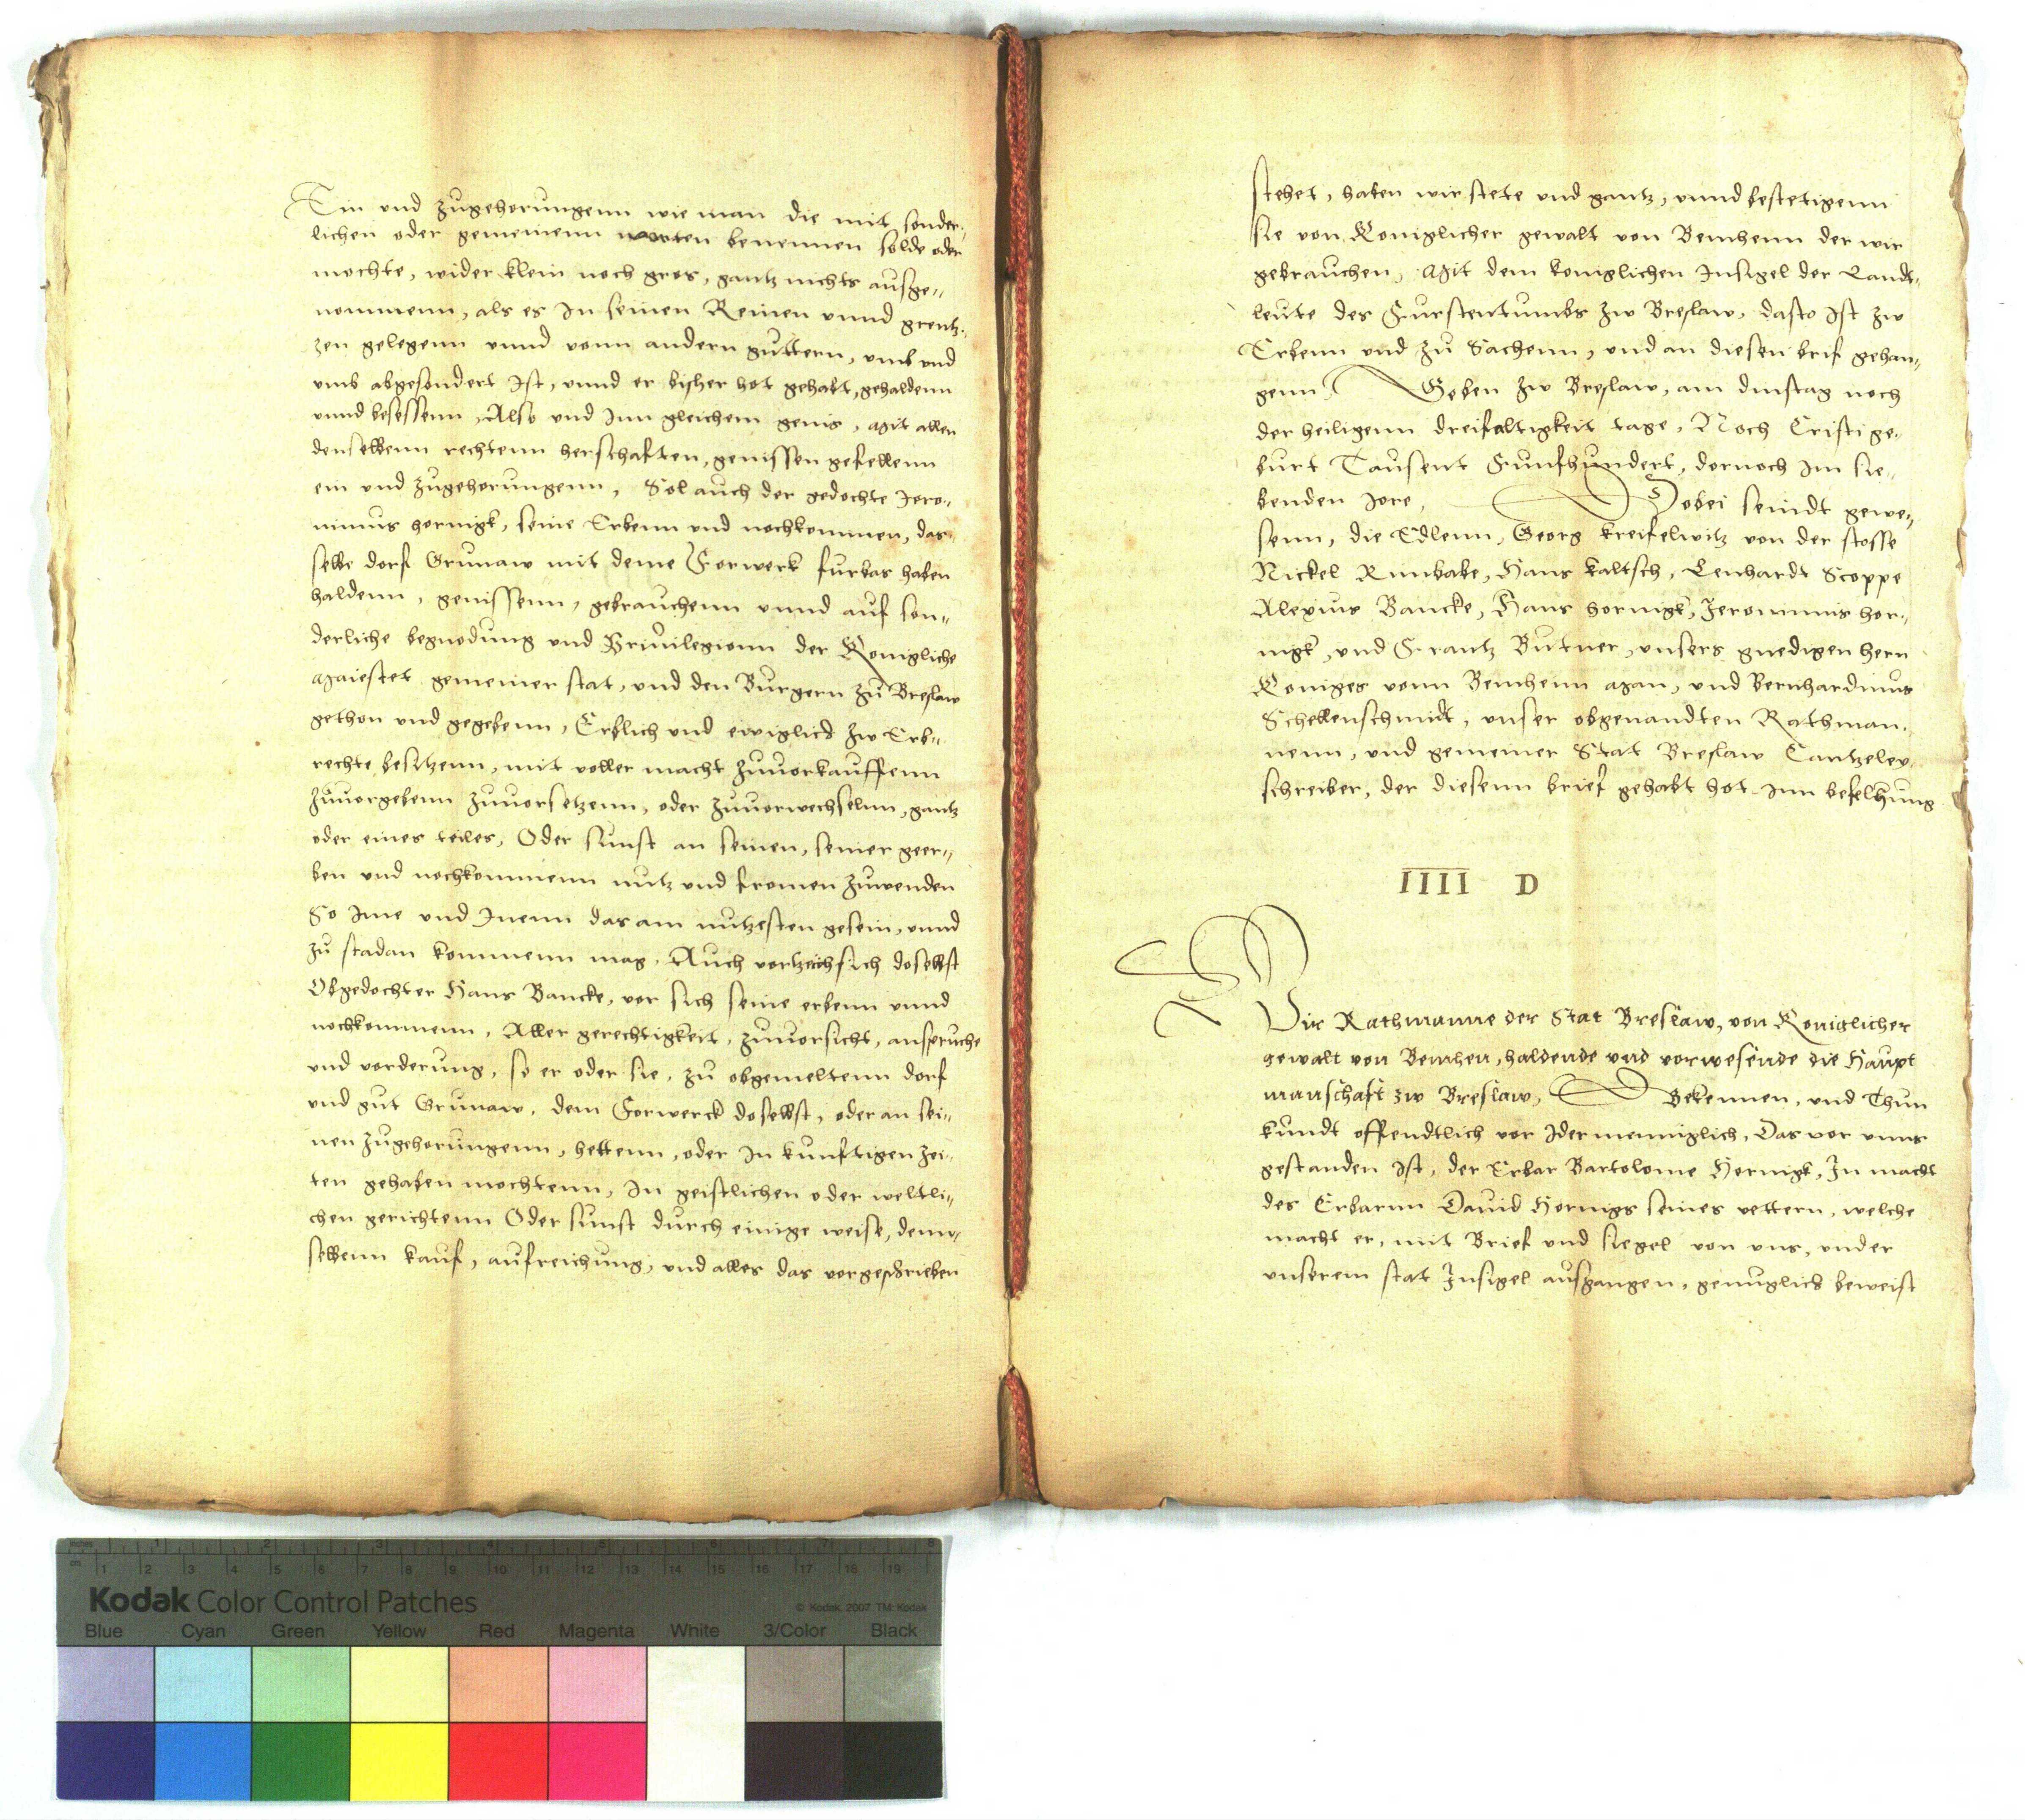 Ein und zugehorungenn wie man die mit sonder-
lichen oder gemeinenn worten benennen solde oder
mochte, wider klein noch gros, gantz nichts ausge-
nommenn, als es in seinen Reinen unnd grentz-
zen gelegenn unnd vonn andern guttern, umb und
umb abgesondert ist, unnd er bisher hot gehabt, gehaldenn
unnd besessenn, Also und inn gleichem genis, Mit allen
denselbenn rechtenn herschafften, genissen gefellenn
ein und zugehorungenn, Sol auch der gedochte Jero-
nimus hornigk, seine Erbenn und nochkommen, das
selbe dorf Grunaw mit deme Forwerk furbas haben
haldenn, genissenn, gebrauchenn unnd auf son-
derliche begnodung und Privilegionn der Konigliche
Maiestet gemeiner stat, und den Burgern zu Breslaw
gethon und gegebenn, Erblich und ewiglich zw Erb-
rechte besitzenn, mit voller macht zuvorkauffenn
zuvorgebenn zuvorsetzenn, oder zuvorwechselnn, gantz
oder eines teiles, Oder sunst an seinen, seiner geer-
ben und nochkommenn nutz und fromen zuwenden
So ime und Inenn das am nutzesten gesein, unnd
zu stadan kommenn mag. Auch vorzeich sich doselbst
Obgedochter Hans Bancke, vor sich seine erbenn unnd
nochkommenn, Aller gerechtigkeit, zuvorsicht, anspruche
und vorderung, so er oder sie, zu obgemeltenn dorf
und gut Grunaw, dem Forwerck doselbst, oder an sei-
nen zugehorungenn, hettenn, oder in kunftigen zei-
ten gehaben mochtenn, in geistlichen oder weltli-
chen gerichtenn Oder sunst durch einige weise, denn-
selbenn kauf, aufreichung, und alles das vorgeschrieben
stehet, haben wir stete und gantz, unnd bestetigenn
sie von Koniglicher gewalt von Bemhenn der wir
gebrauchen, Mit dem koniglichen Insigel der Landt-
leute des Furstentumbs zw Breslaw, dasto ist zw
Erbenn und zu Sachenn, und an diesen brif gehan-
genn, Geben zw Breslaw, am dinstag noch
der heiligenn dreifaltigkeit tage, Noch Cristi ge-
burt Tausent Funfhundert, dornoch im sie-
benden Jore, Dobei seindt gewe-
senn, die Edlenn, Georg kreiselwitz von der stosse
Nickel Runbabe, Hans kaltsch, Lenhardt Scoppe
Alexius Bancke, Hans hornigk, Jeronimus hor-
nigk, und Frantz Butner, unsers gnedigen hern
Koniges vonn Bemhenn Man, und Bernhardinus
Schellenschmidt, unser obgenandten Rathman-
nenn, und gemeiner Stat Breslaw Cantzeley
schreiber, der diesenn brief gehabt hot inn befelhung
IIII D
Wir Rathmanne der Stat Breslaw, von Koniglicher
gewalt von Bemhen, haldende und vorwesende die Haupt
manschaft zw Breslaw, Bekennen, und Thun
kundt offendtlich vor Idermenniglich, Das vor unns
gestanden ist, der Erbar Bartolome Hornigk, In macht
des Erbarnn David Hornigs seines vettern, welche
macht er, mit Brief und siegel von uns, under
unserem stat Insigel ausgangen, genuglich beweist
Kodak Color Control Patches
© Kodak, 2007 TM: Kodak
Blue Cyan Green Yellow Red Magenta White 3/Color Black